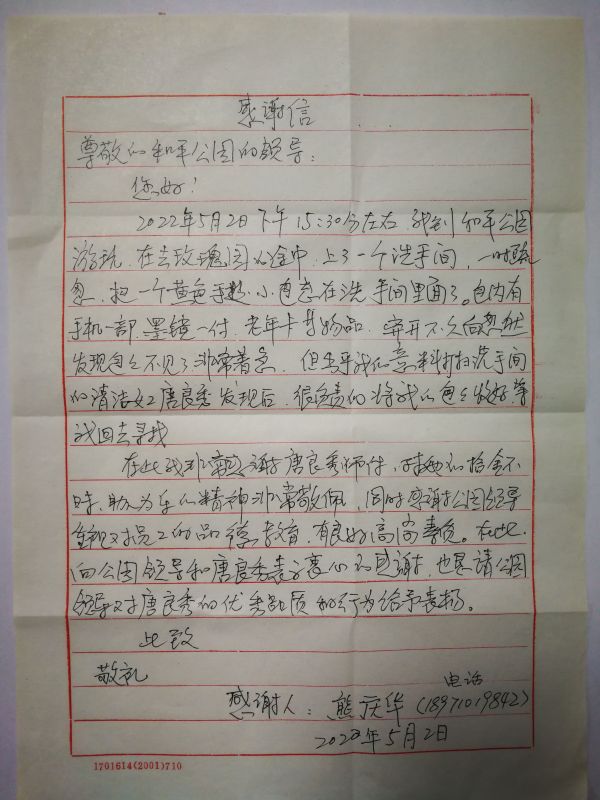 感谢信
尊敬的和平公园的领导：
您好！
2022年5月2日下午15:30分左右，我到和平公园
游玩，在去玫瑰园的途中，上了一个洗手间，一时疏
忽，把一个黄色手提小包忘在洗手间里面了。包内有
手机一部，墨镜一付，老年卡等物品，离开不久后忽然
发现包包不见了非常着急，但出乎我的意料打扫洗手间
的清洁女工唐良秀发现后，很负责的将我的包包收好等
我回去寻找
在此我非常感谢唐良秀师付，对她的拾金不
昧、助人为乐的精神非常敬佩，同时感谢公园领导
重视对员工的品德教育，有良好高尚素质。在此
向公园领导和唐良秀表示衷心的感谢，也恳请公园
领导对唐良秀的优秀品质和行为给予表扬。
此致
敬礼
电话
感谢人：熊庆华（18971019842）
2022年5月2日
1701614(2001)710